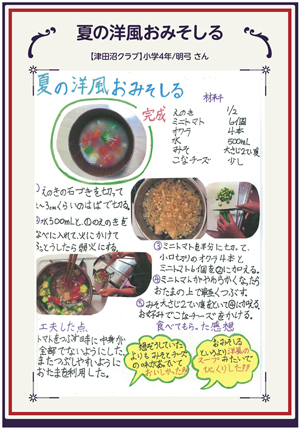 夏の洋風おみそしる
【津田沼クラブ】小学4年/明弓 さん
夏の洋風おみそしる
材料
完成
えのき 1/2
ミニトマト 6個
オクラ 4本
水 500mL
みそ 大さじ2い夏
こなチーズ 少し
①えのきの石づきを切って
2～3cmくらいのはばで切る。
②水500mLと、①のえのきを
なべに入れて、火にかけて
ふっとうしたら弱火にする。
③ミニトマトを半分に切って、
小口切りのオクラ4本と
ミニトマト6個を②に加える。
④ミニトマトがやわらかくなったら
おたまの上で軽くつぶす。
⑤みそ大さじ2てい度といて④に加える。
お好みでこなチーズをかける。
工夫した点
トマトをつぶす時に中身が
全部でないようにした。
またつぶしやすいように
おたまを利用した。
食べてもらった感想
想ぞうしていた
よりもみそとチーズ
の味があっていて
おいしかった!!
おみそしる
というより洋風の
スープみたいで
びっくりした!!